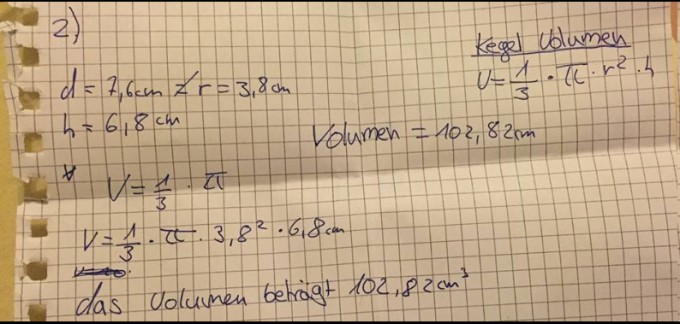 2)
Kegel Volumen
V = 1/3 · π · r² · h
d = 7,6cm ≠ r = 3,8cm
h = 6,8 cm
Volumen = 102,82cm
V = 1/3 · π
V = 1/3 · π · 3,8² · 6,8cm
das Volumen beträgt 102,82cm³